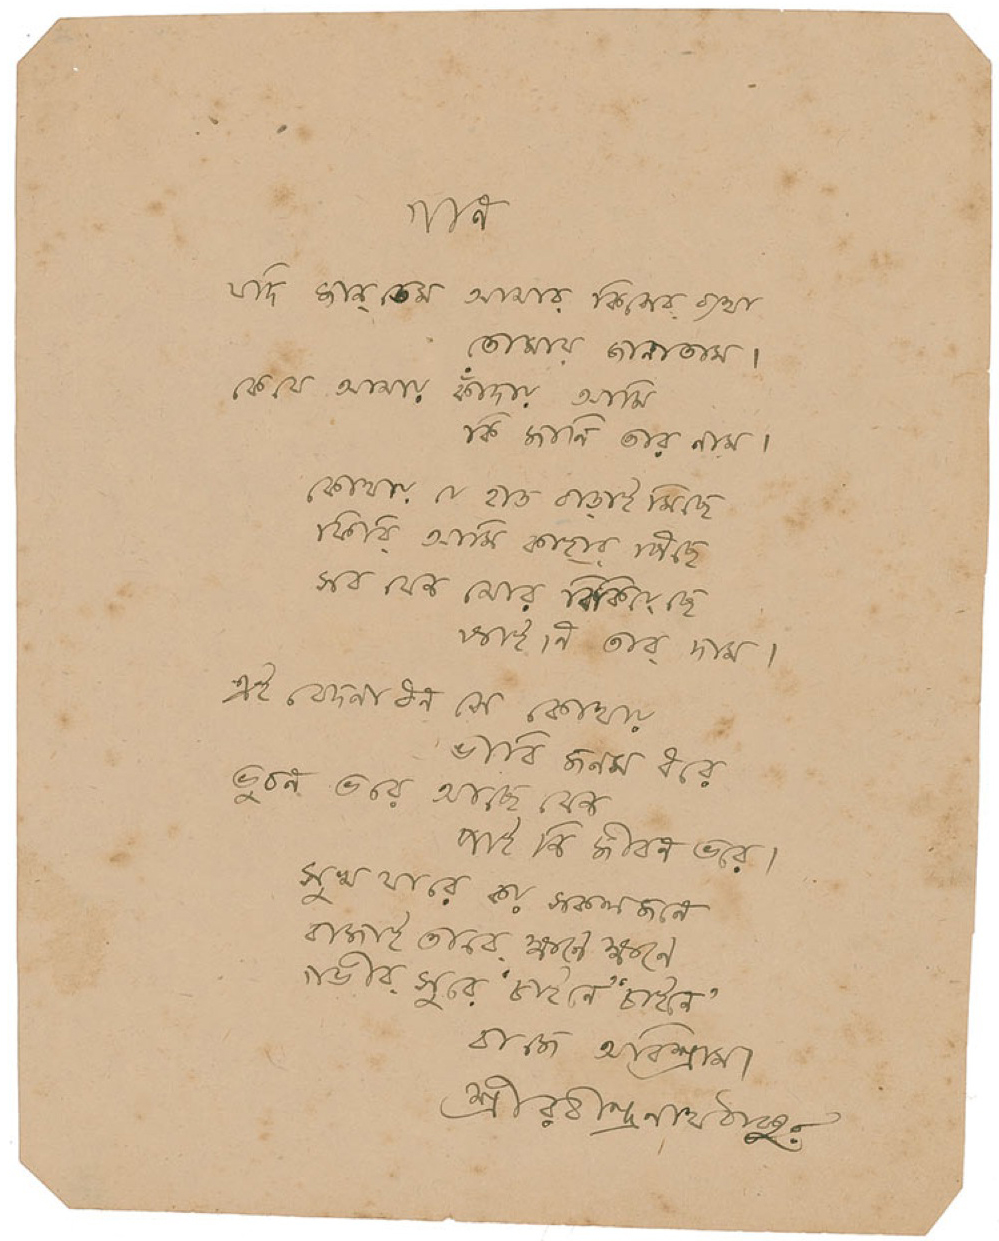 গান
যদি জান্‌তেম আমার কিসের ব্যথা
তোমায় জানাতাম।
কে যে আমায় কাঁদায় আমি
কি জানি তার নাম।
কোথায় যে হাত বাড়াই মিছে
ফিরি আমি কাহার পিছে
সব যেন মোর বিকিয়েছে
পাইনি তার দাম।
এই বেদনার ধন সে কোথায়
ভাবি জনম ধরে
ভুবন ভরে আছে যেন
পাইনি জীবন ভরে।
সুখ যারে কয় সকল জনে
বাজাই তারে ক্ষণে ক্ষণে
গভীর সুরে "চাইনে" "চাইনে"
বাজে অবিশ্রাম।
শ্রীরবীন্দ্রনাথ ঠাকুর